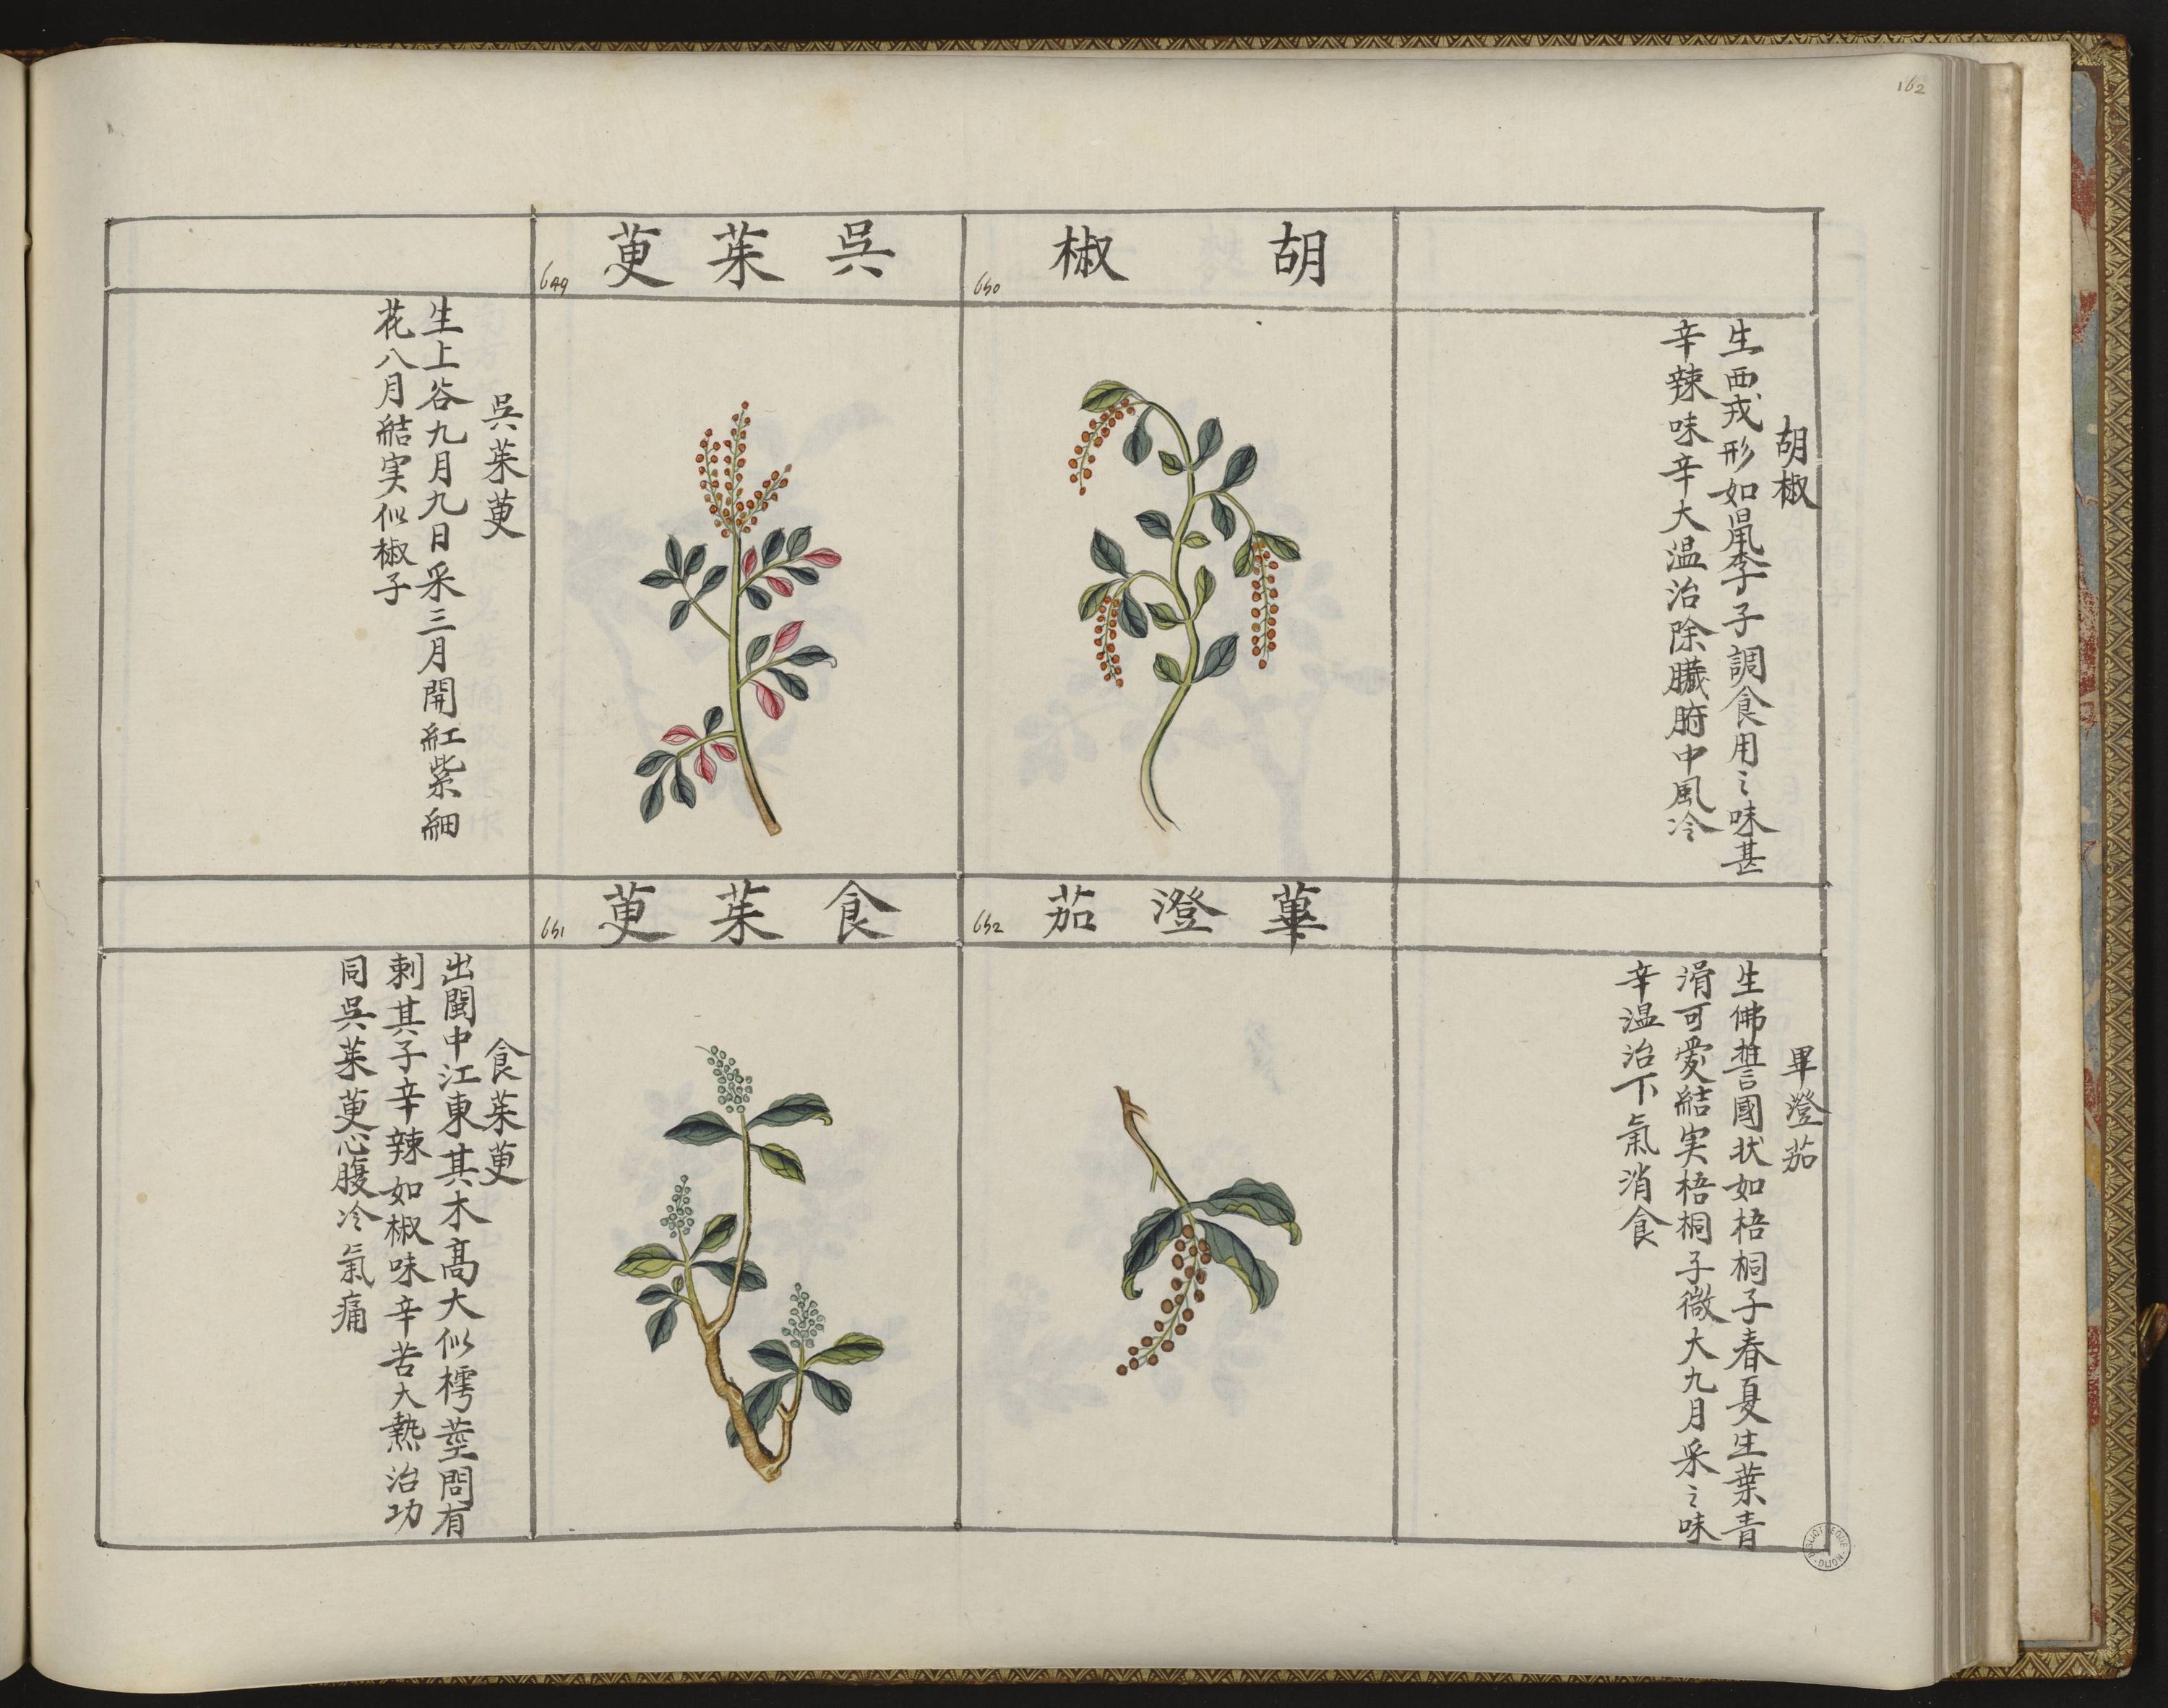 162
胡椒
650
胡椒
生西戎形如鼠李子調食用之味甚
辛辣味辛大温治除臟腑中風冷
吳茱萸
649
吳茱萸
生上谷九月九日采三月開紅紫細
花八月結実似椒子
蓽澄茄
652
畢澄茄
生佛誓國状如梧桐子春夏生葉青
滑可愛結実梧桐子微大九月采之味
辛温治下氣消食
食茱萸
651
食茱萸
出閩中江東其木高大似樗莖間有
刺其子辛辣如椒味辛苦大熱治功
同吳茱萸心腹冷氣痛